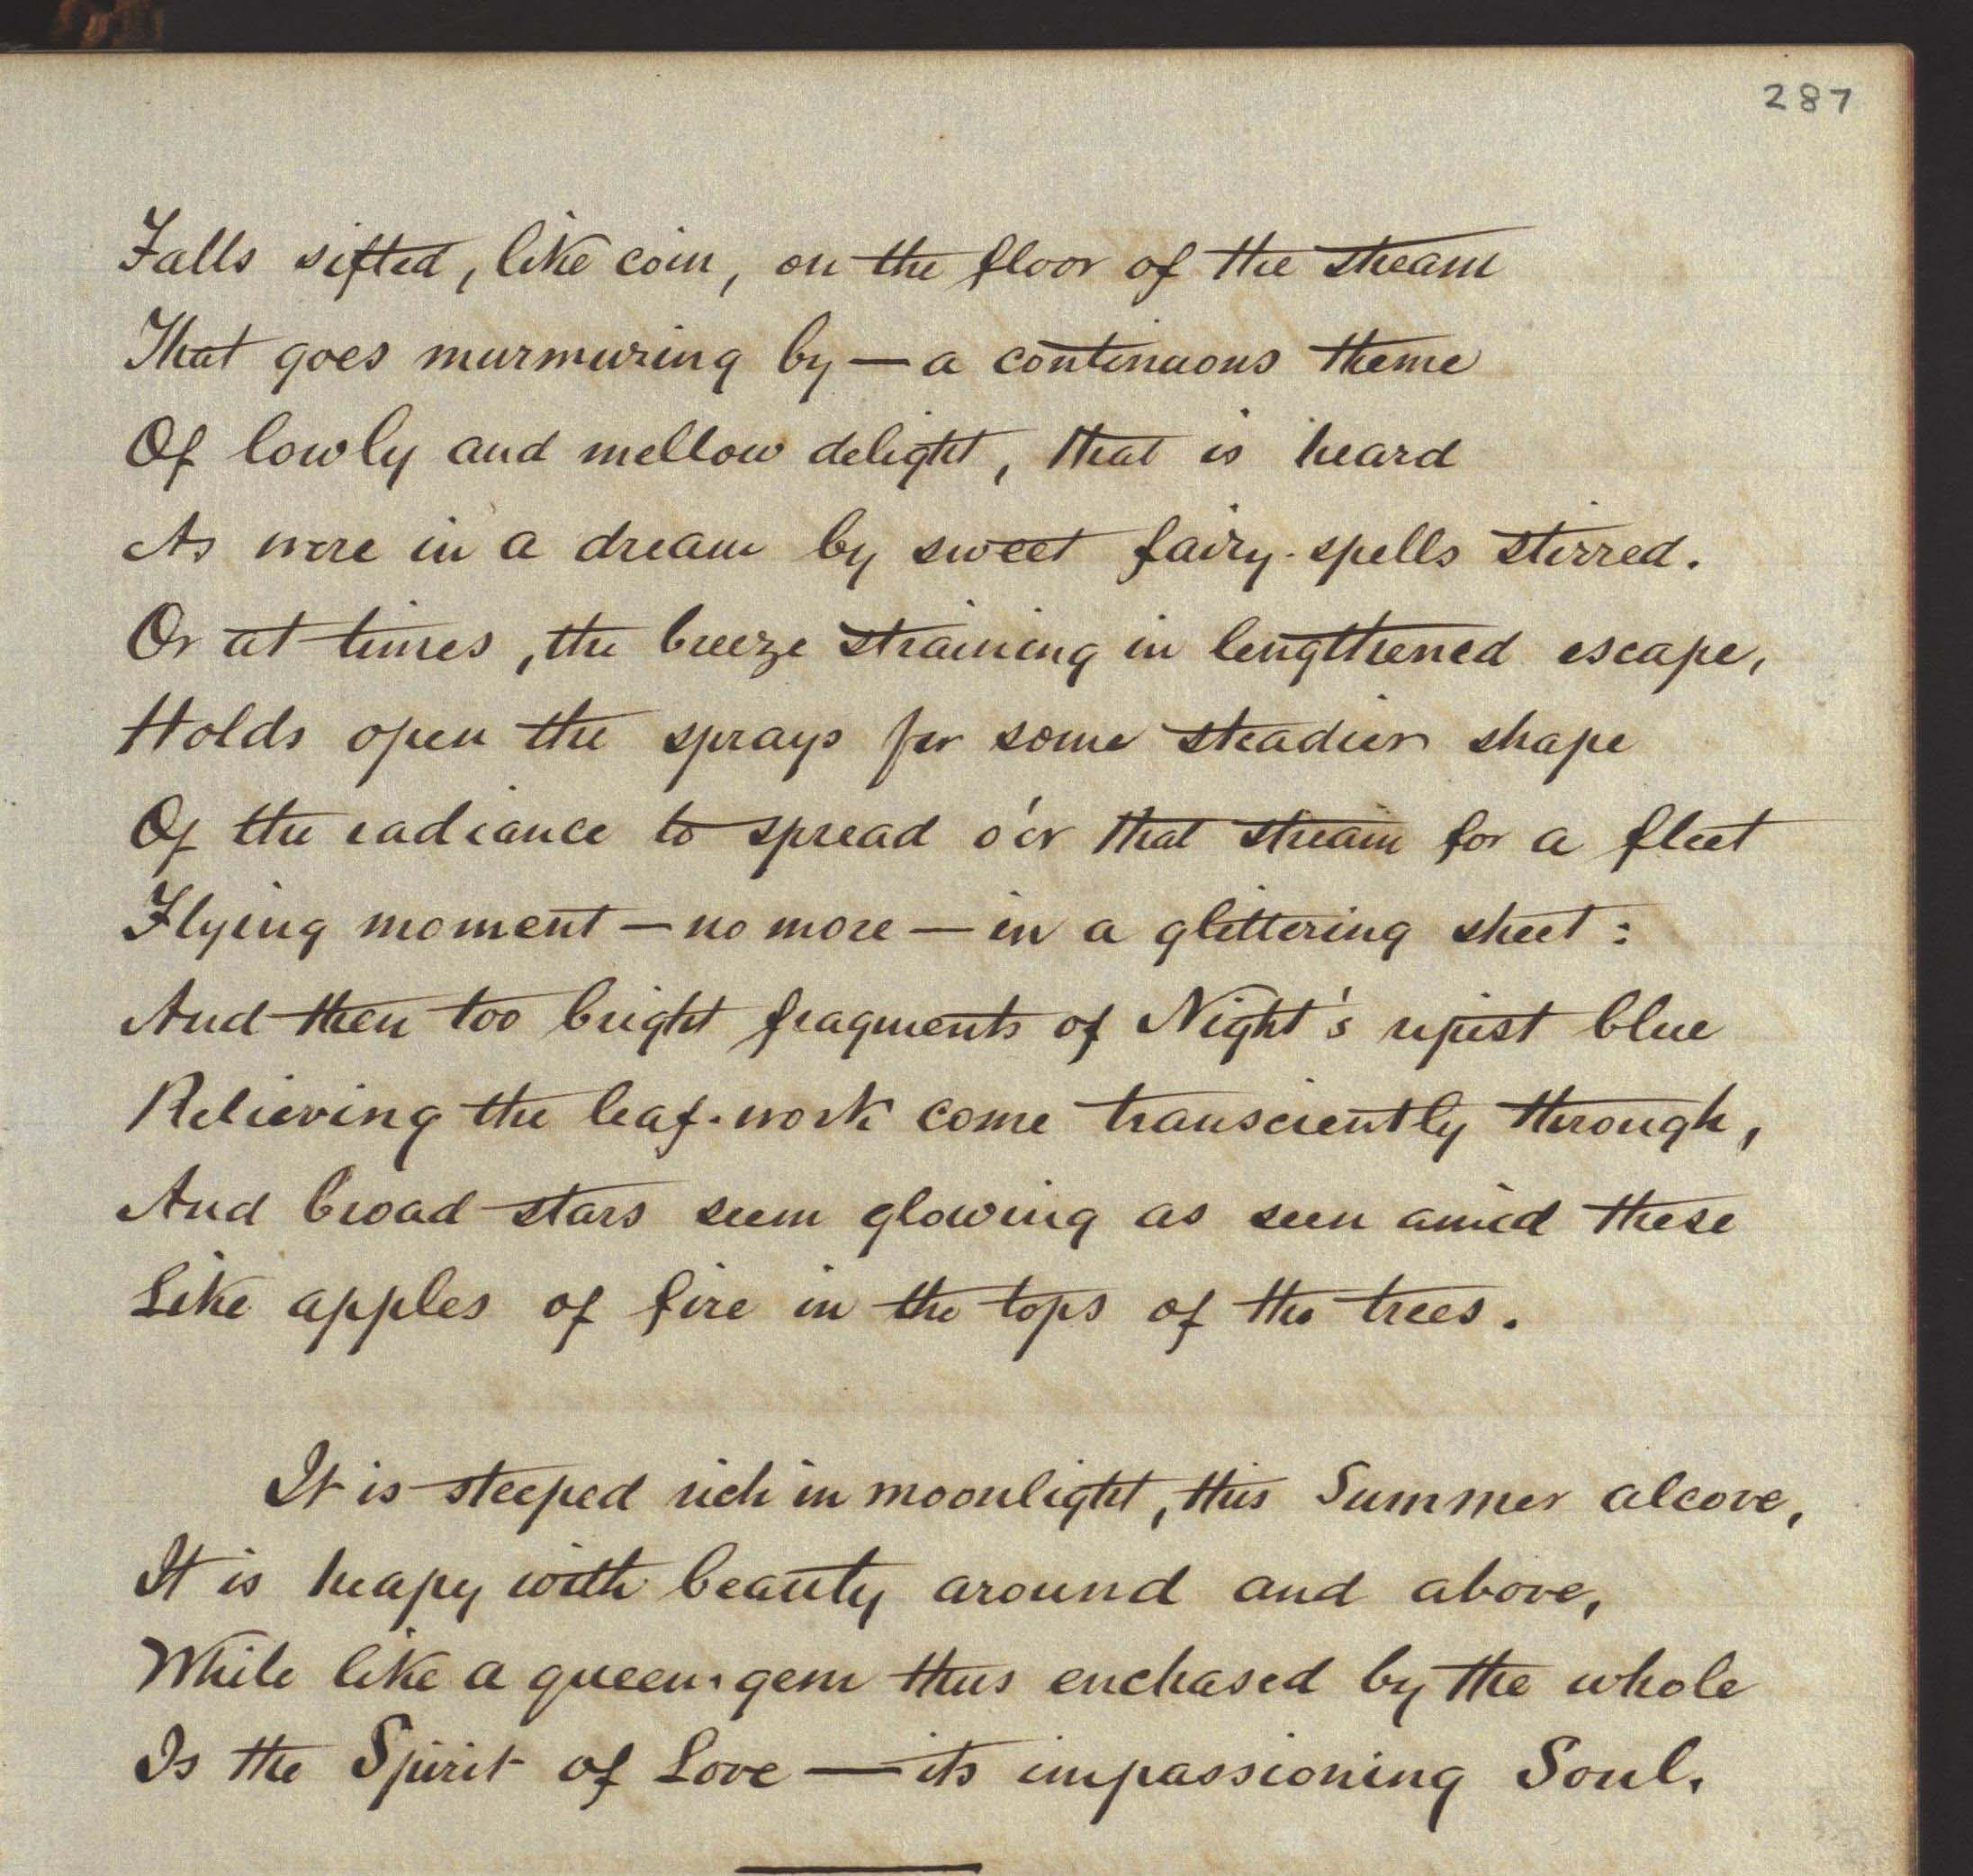 287
Falls sifted, like coin, on the floor of the stream
That goes murmuring by — a continuous theme
Of lowly and mellow delight, that is heard
As were in a dream by sweet fairy-spells stirred.
Or at times, the breeze straining in lengthened escape,
Holds open the sprays for some steadier shape
Of the radiance to spread o'er that stream for a fleet
Flying moment — no more — in a glittering sheet :
And then too bright fragments of Night's ripest blue
Relieving the leaf-work come transciently through,
And broad stars seem glowing as seen amid these
Like apples of fire in the tops of the trees.
It is steeped rich in moonlight, this Summer alcove,
It is heapy with beauty around and above,
While like a queen-gem thus enchased by the whole
Is the Spirit of Love — its impassioning Soul.